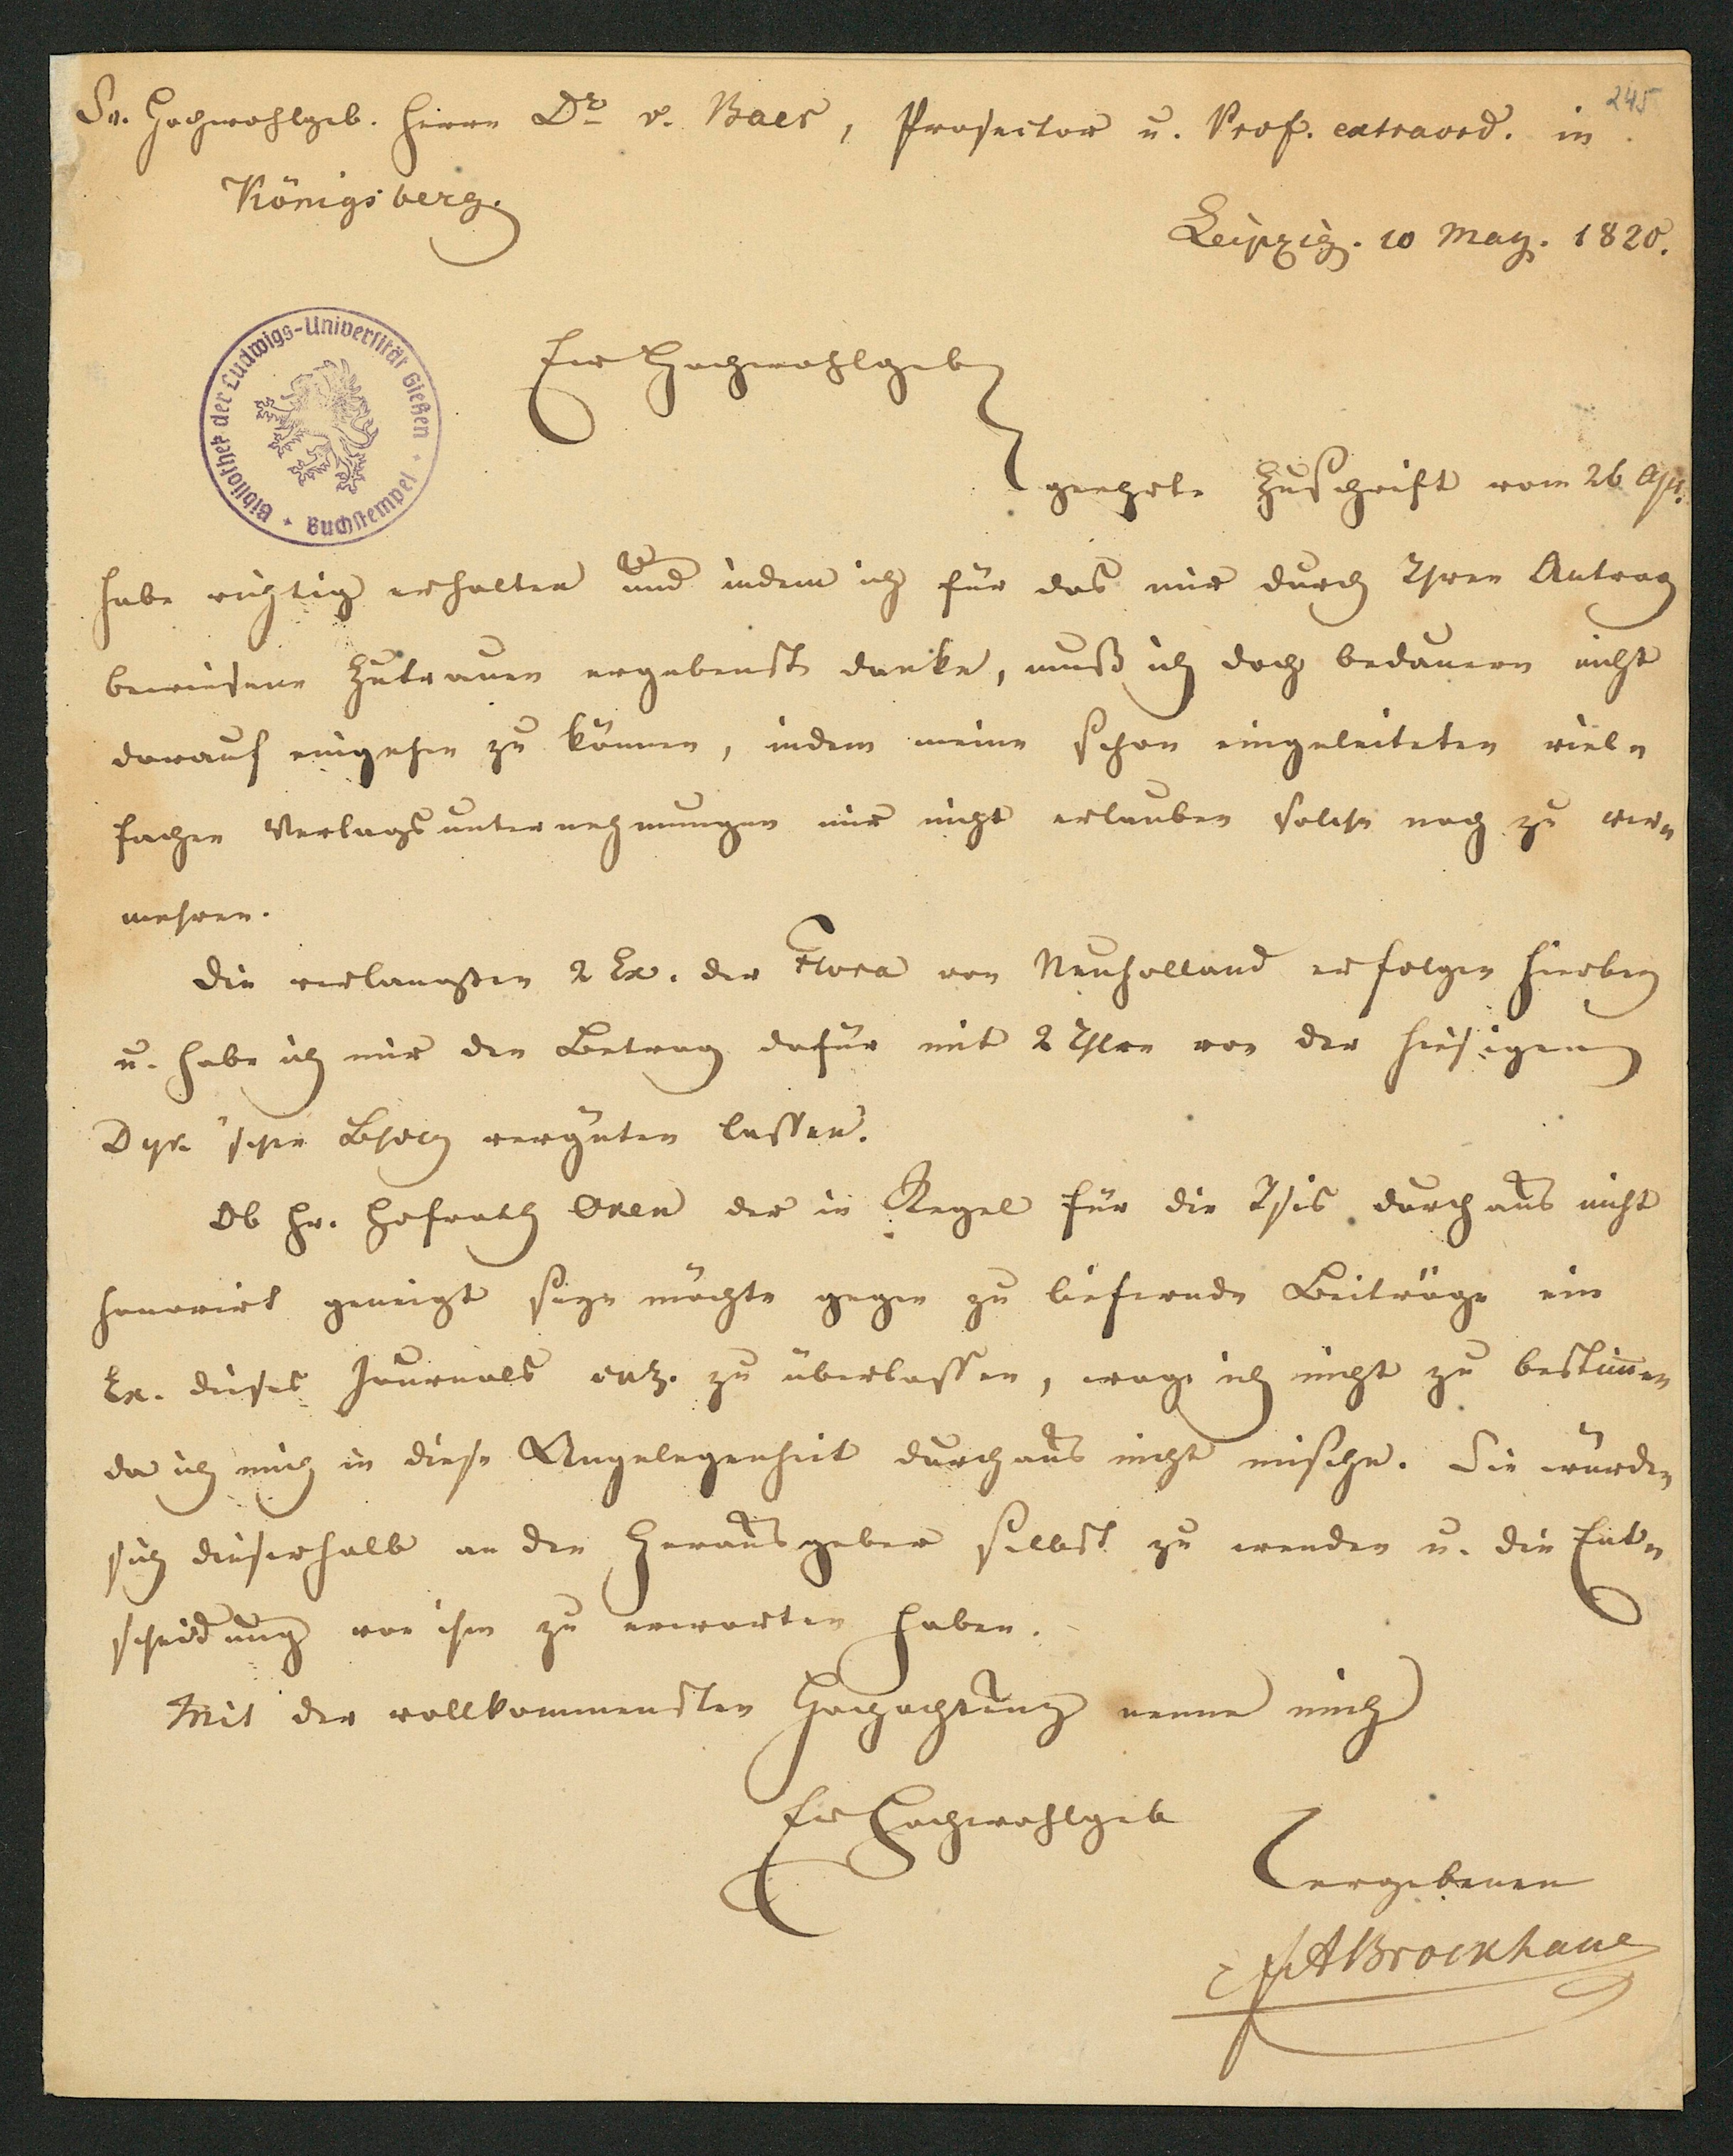 245
Sr. Hochwohlgeb. Herrn Dr v. Baer, Prosector u. Prof. extraord. in
Königsberg.
Leipzig. 10 May. 1820.
Bibliothek der Ludwigs-Universität Gießen
Buchstempel
Ew Hochwohlgeb
geehrte Zuschrift vom 26 Apr.
habe richtig erhalten und indem ich für das mir durch Ihren Antrag
bewiesene Zutrauen ergebenst danke, muß ich doch bedauern nicht
darauf eingehen zu können, indem meine schon eingeleiteten viel-
fachen Verlagsunternehmungen mir nicht erlauben solche noch zu ver-
mehren.
Die verlangten 2 Ex. der Flora von Neuholland erfolgen hierbey
u. habe ich mir den Betrag dafür mit 2 Thlrn von der hiesigen
Dyk'schen Bhdlg vergüten lassen.
Ob Hr. Hofrath Oken der in Regel für die Isis durchaus nicht
honorirt geneigt seyn möchte gegen zu liefernde Beiträge ein
Ex. dieses Journals zu überlassen, wage ich nicht zu bestim̅en
da ich mich in diese Angelegenheit durchaus nicht mische. Sie würden
sich dieserhalb an den Herausgeber selbst zu wenden u. die Ent-
scheidung von ihm zu erwarten haben.
Mit der vollkommensten Hochachtung nenne mich
Ew Hochwohlgeb
ergebenen
FABrockhaus